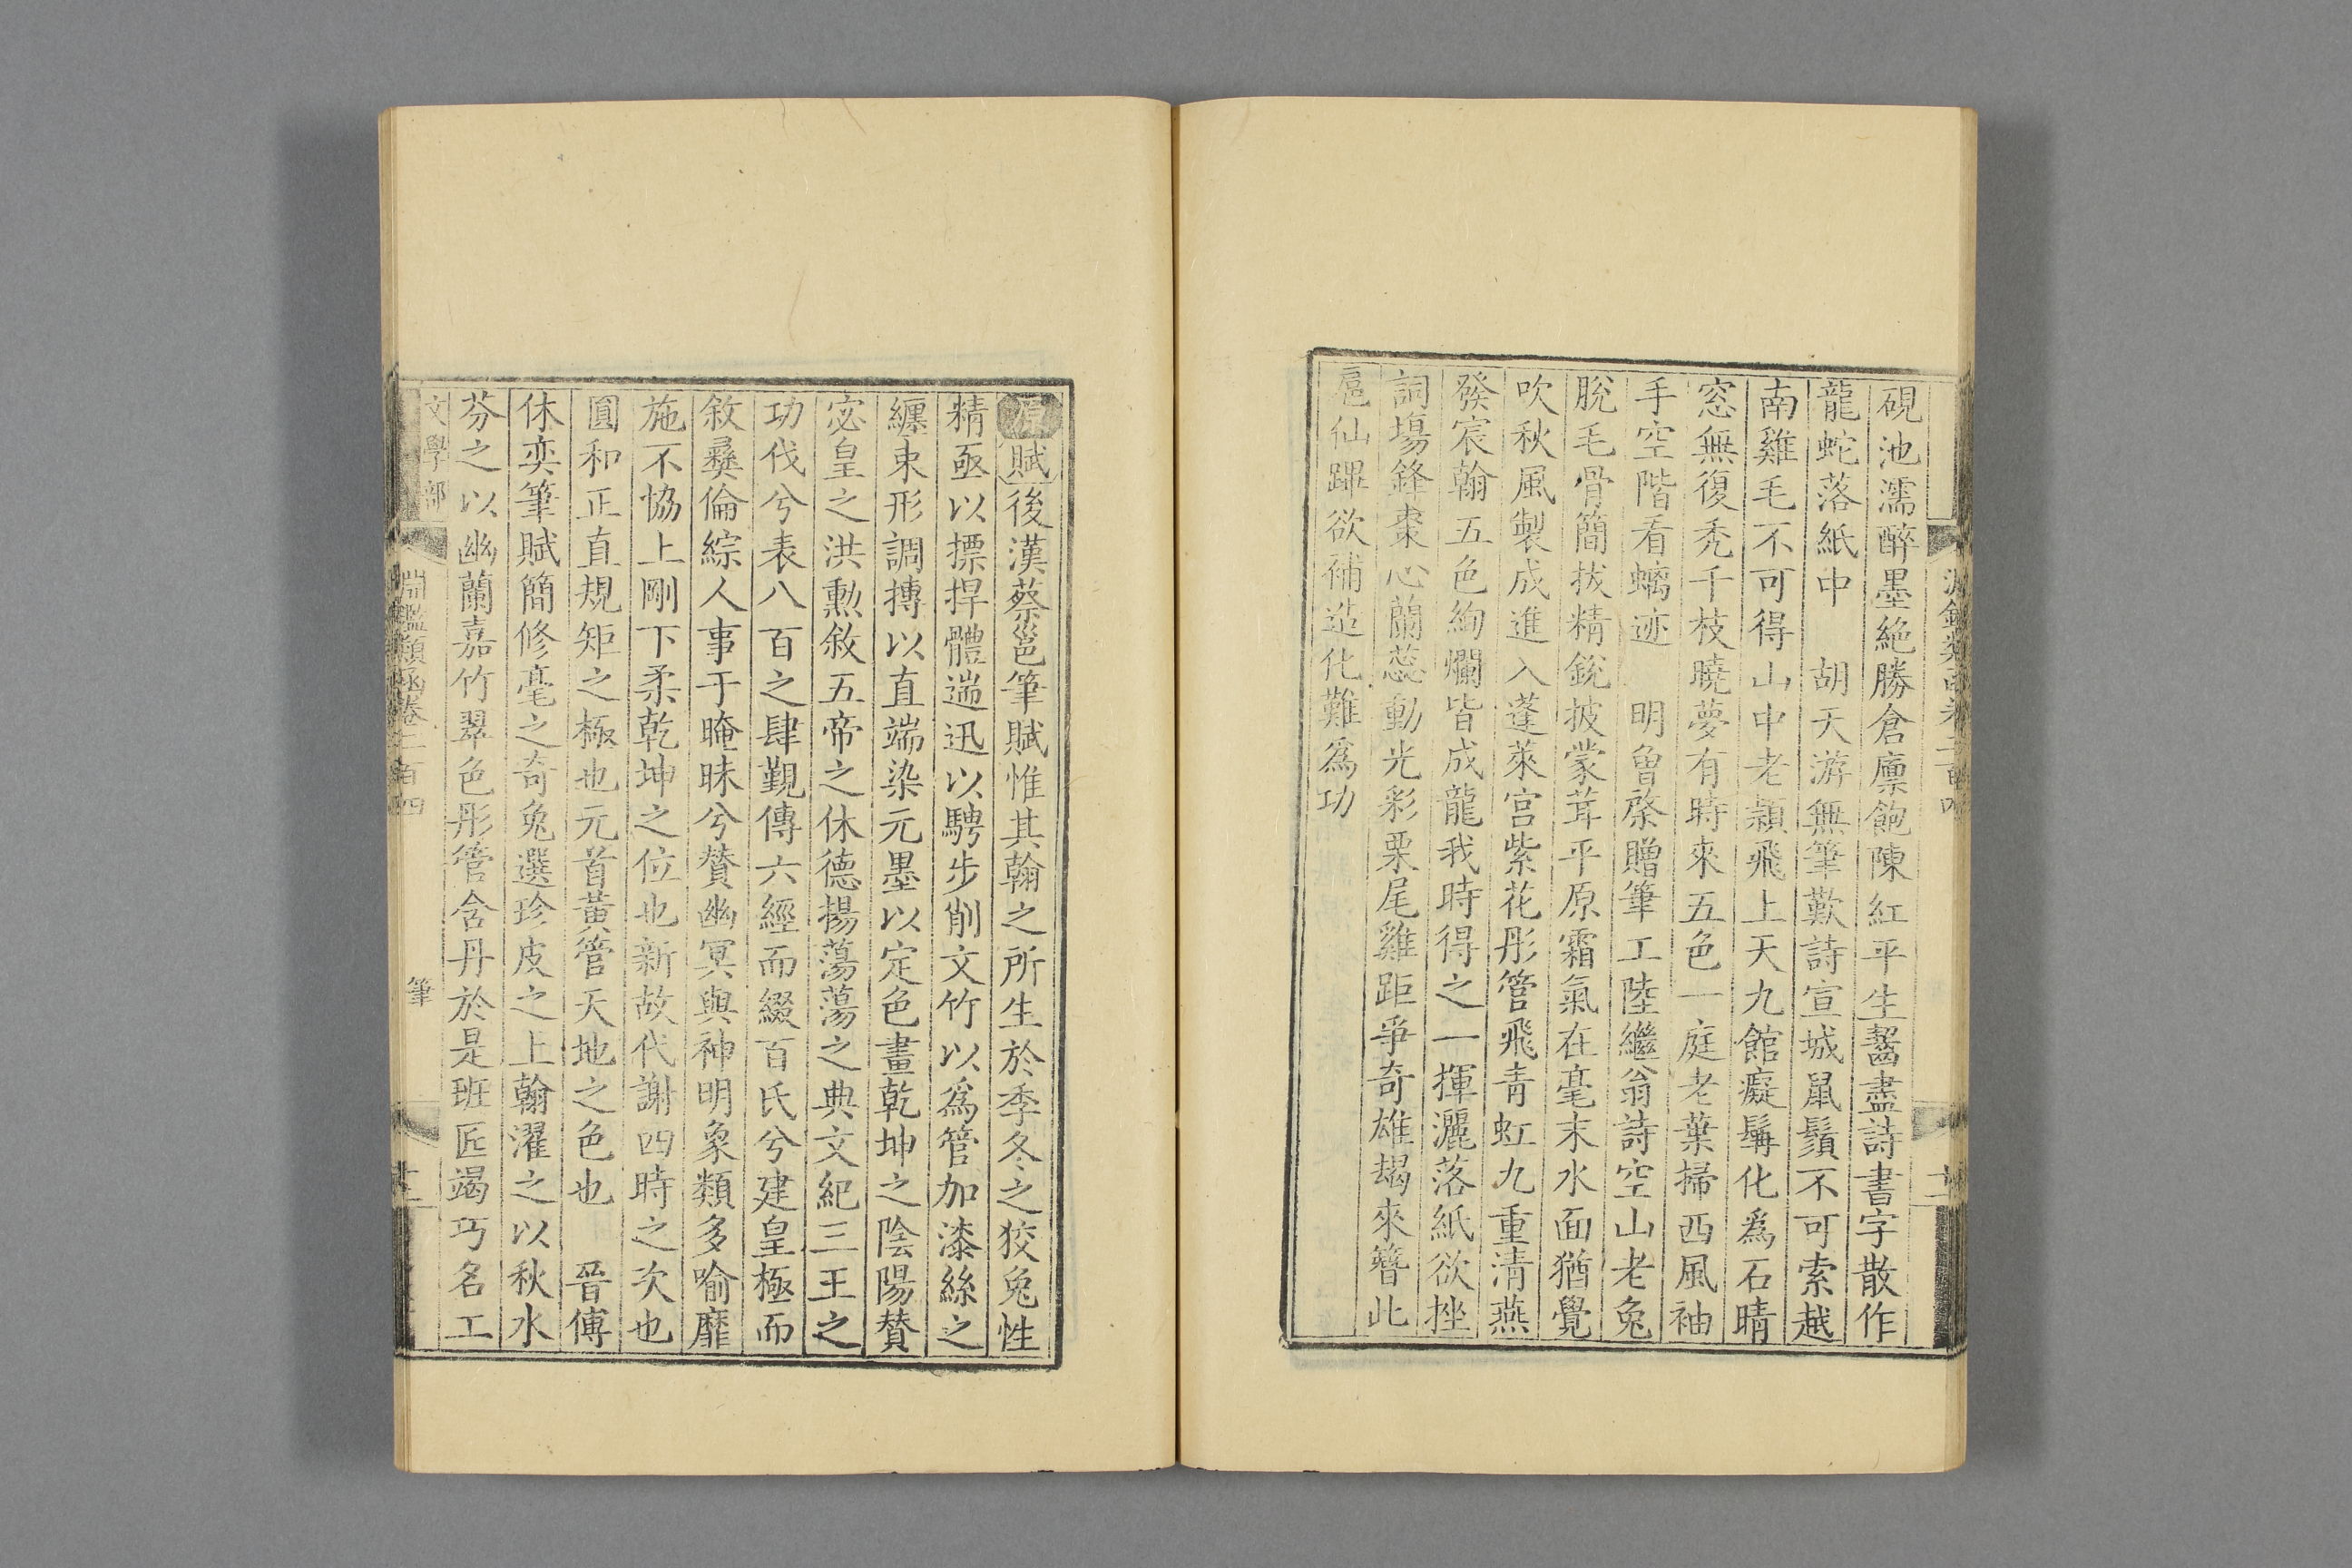 硯池濡醉墨絶勝倉廪飽陳紅平生齧盡詩書字散作
龍蛇落紙中　胡天游無筆歎詩宣城鼠鬚不可索越
南雞毛不可得山中老頴飛上天九館癡髯化爲石晴
窓無復禿千枝曉夢有時來五色一庭老葉掃西風袖
手空階看蝸迹　明曾棨贈筆工陸繼翁詩空山老兔
脫毛骨簡拔精銳披蒙茸平原霜氣在毫末水面猶覺
吹秋風製成進入蓬萊宮紫花彤管飛青虹九重清燕
發宸翰五色絢爛皆成龍我時得之一揮灑落紙欲挫
詞塲鋒棗心蘭蕊動光彩栗尾雞距爭奇雄朅來簪此
扈仙蹕欲補造化難爲功
原賦後漢蔡邕筆賦惟其翰之所生於季冬之狡兔性
精亟以摽捍體遄迅以騁步削文竹以爲管加漆絲之
纏束形調摶以直端染元墨以定色畫乾坤之陰陽贊
宓皇之洪勲敘五帝之休德揚蕩蕩之典文紀三王之
功伐兮表八百之肆覲傳六經而綴百氏兮建皇極而
敘彝倫綜人事于晻昧兮贊幽冥與神明象類多喻靡
施不協上剛下柔乾坤之位也新故代謝四時之次也
圓和正直規矩之極也元首黃管天地之色也　晉傅
休奕筆賦簡修毫之奇兔選珍皮之上翰濯之以秋水
芬之以幽蘭嘉竹翠色彤管含丹於是班匠竭巧名工
文學部　淵鑑類函卷二百四　筆　十二